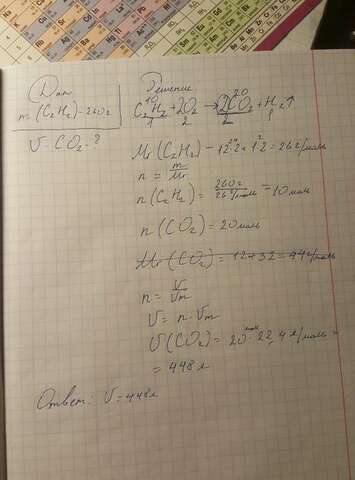 Дано
m (C₂H₂) = 260г
V - CO₂ - ?
Решение
10 20
C₂H₂ + 2O₂ → 2CO₂ + H₂↑
1 2 2 1
Mr (C₂H₂) - 12·2 + 1·2 = 26 г/моль
n = m/Mr
n (C₂H₂) = 260г / 26 г/моль = 10 моль
n (CO₂) = 20 моль
Mr (CO₂) = 12 + 32 = 44 г/моль
n = V/Vm
V = n · Vm
V (CO₂) = 20 моль · 22,4 л/моль =
= 448 л
Ответ: V = 448 л